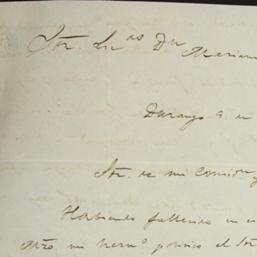 Sor. Lic. Dn. Mariano
Durango 9. en
Sor. de mi
Habiendo fallecido en e
Ntro. mi herno. politico el Sor